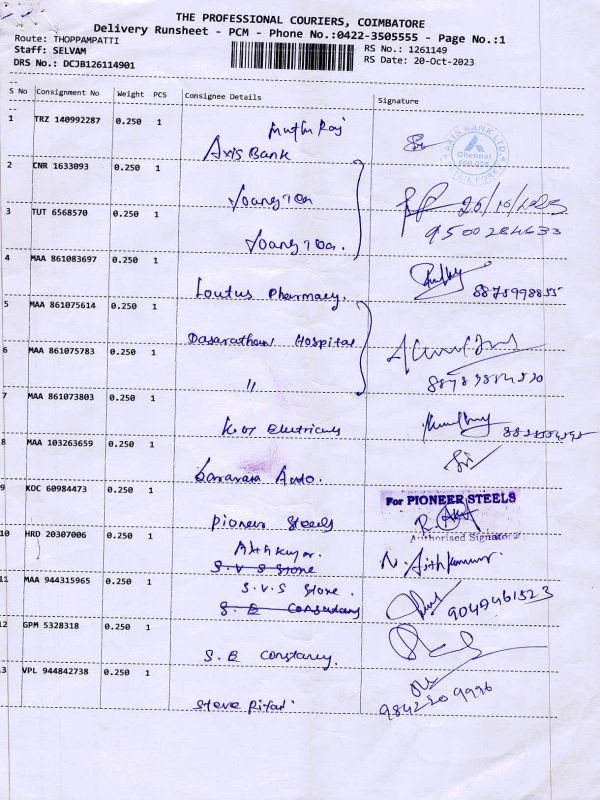 THE PROFESSIONAL COURIERS, COIMBATORE
Delivery Runsheet - PCM - Phone No.:0422-3505555 - Page No.:1
Route: THOPPAMPATTI
Staff: SELVAM
DRS No.: DCJB126114901
RS No.: 1261149
RS Date: 20-Oct-2023
S No Consignment No Weight PCS Consignee Details Signature
1 TRZ 140992287 0.250 1 Muthu Raj
Axis Bank
AXIS BANK LTD. Chennai 600 026
2 CNR 1633093 0.250 1 Young Ten
20/10/2023
3 TUT 6568570 0.250 1 Young Ten.
4 MAA 861083697 0.250 1 Loutus Pharmacy.
8878998855
5 MAA 861075614 0.250 1 Dasarathan Hospital
6 MAA 861075783 0.250 1 "
7 MAA 861073803 0.250 1
8 MAA 103263659 0.250 1 Auto.
9 KOC 60984473 0.250 1 Pioneer Steels
For PIONEER STEELS
Authorised Signatory
10 HRD 20307006 0.250 1
S.V S Stone
11 MAA 944315965 0.250 1 S.V.S Stone.
S. E
12 GPM 5328318 0.250 1 S. E
13 VPL 944842738 0.250 1 Steve